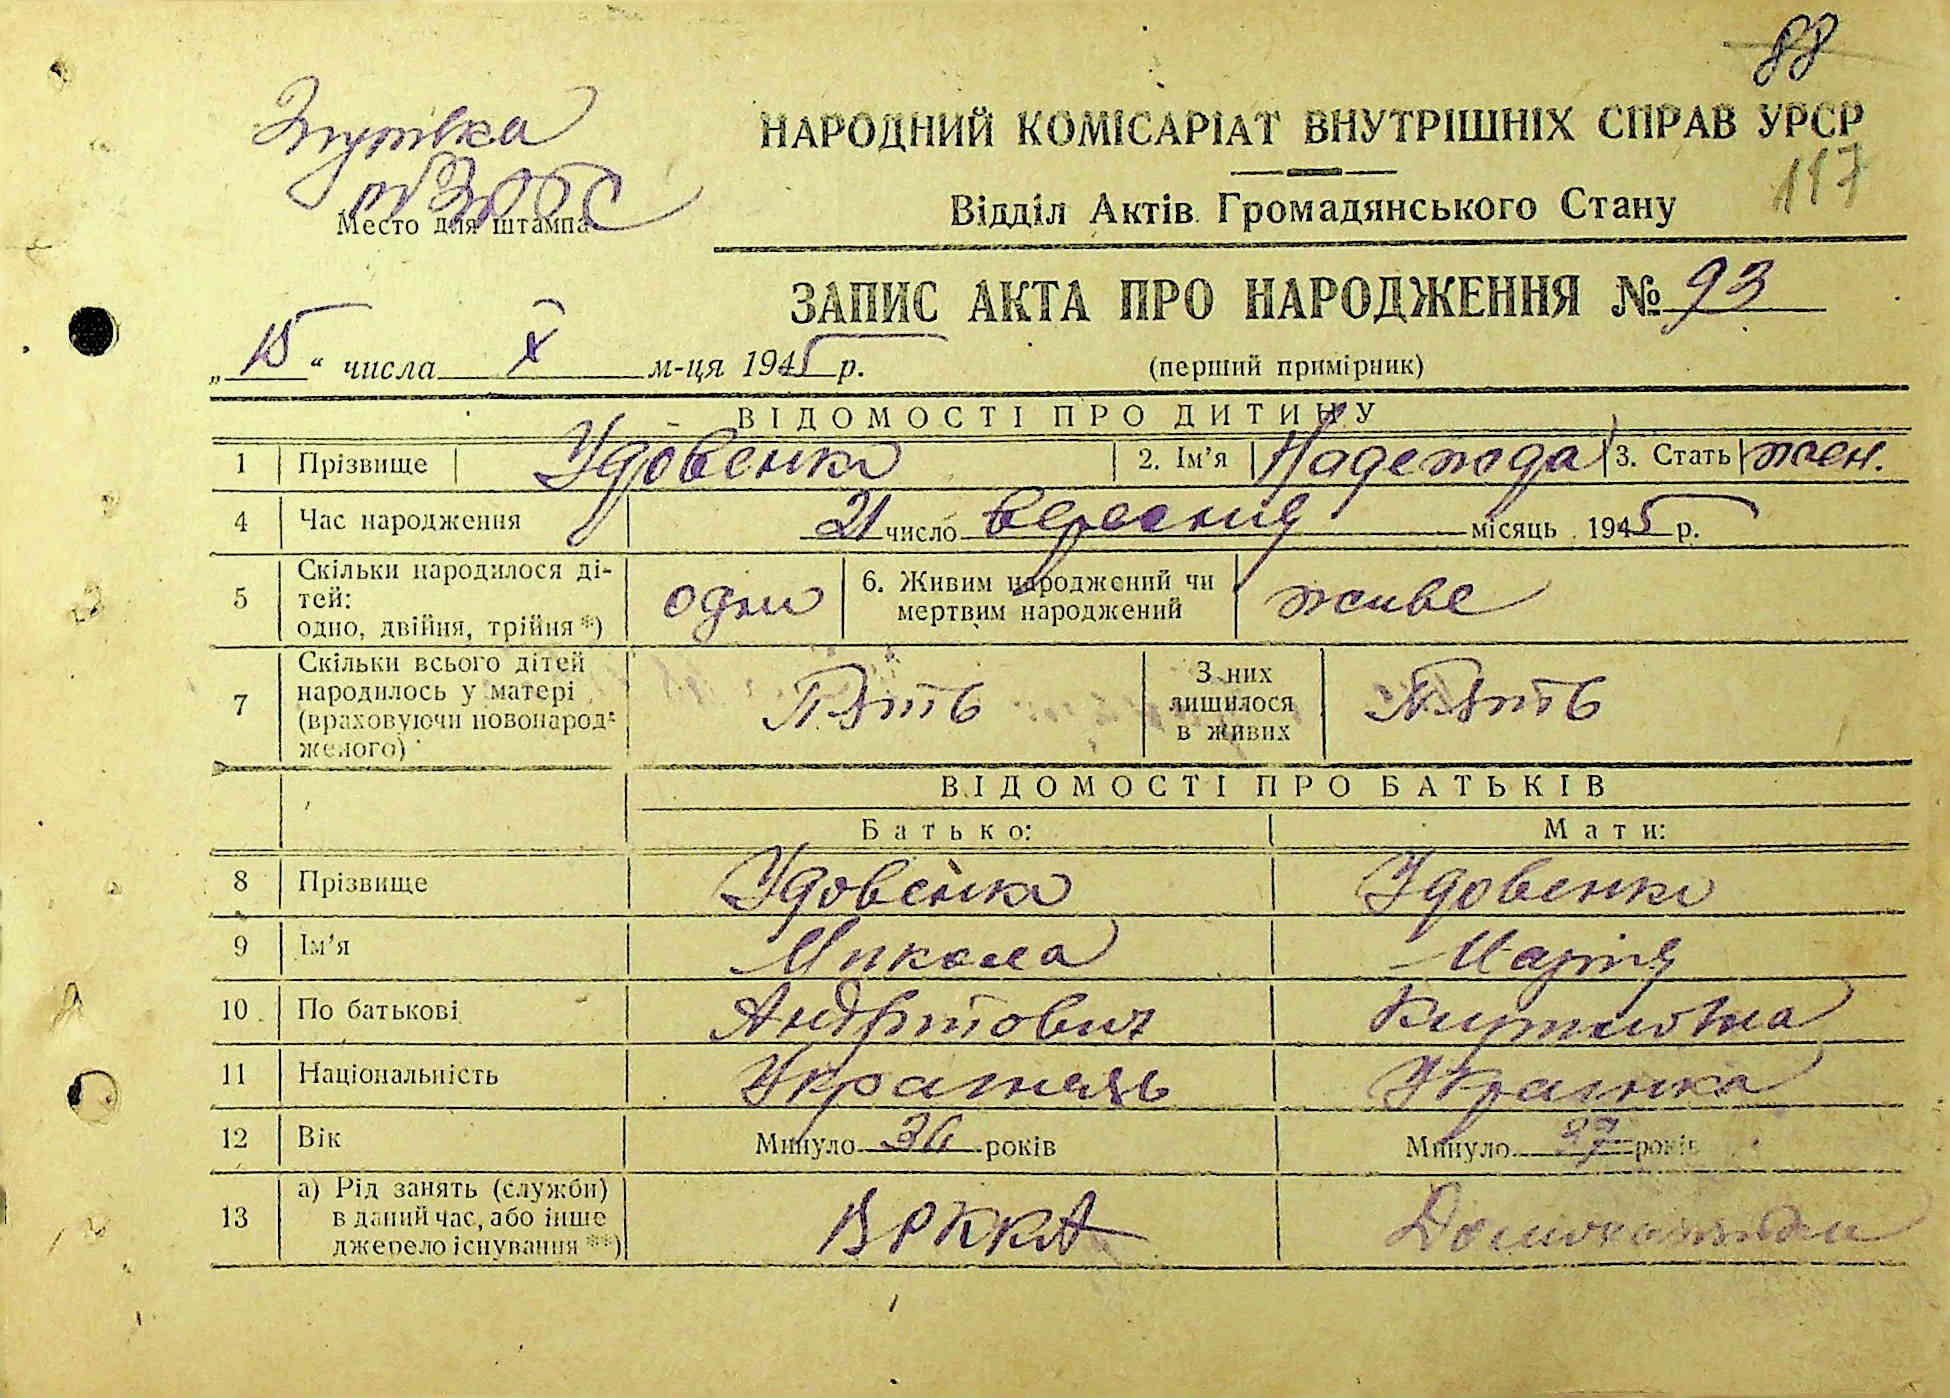 88
НАРОДНИЙ КОМІСАРІАТ ВНУТРІШНІХ СПРАВ УРСР
117
Відділ Актів Громадянського Стану
рбЗАГС
Место для штампа
ЗАПИС АКТА ПРО НАРОДЖЕННЯ № 93
„15“ числа X м-ця 1945 р. (перший примірник)
ВІДОМОСТІ ПРО ДИТИНУ
1 Прізвище Удовенко 2. Ім’я Надежда 3. Стать жен.
4 Час народження 21 число вересня місяць 1945 р.
5 Скільки народилося ді-
тей:
одно, двійня, трійня *) одно 6. Живим народжений чи
мертвим народжений живе
7 Скільки всього дітей
народилось у матері
(враховуючи новонарод-
женого) Пять З них
лишилося
в живих Пять
ВІДОМОСТІ ПРО БАТЬКІВ
Батько: Мати:
8 Прізвище Удовенко Удовенко
9 Ім’я Микола Марія
10 По батькові Андрійович Кирилівна
11 Національність Українець Українка
12 Вік Минуло 36 років Минуло 37 років
13 а) Рід занять (служби)
в даний час, або інше
джерело існування **) В РККА Домохазяйка